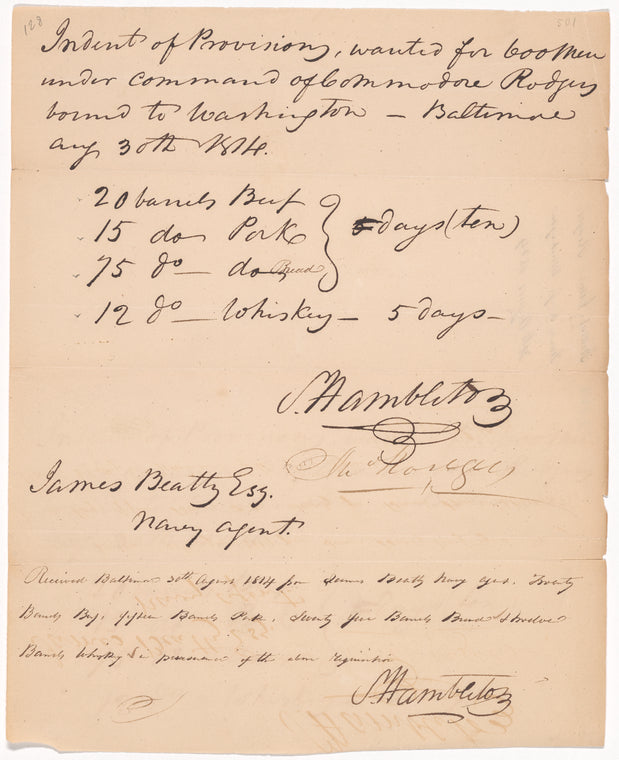 128
501
Indent of Provisions, wanted for 600 Men
under command of Commodore Rodgers
bound to Washington — Baltimore
Aug 30th 1814.
20 barrels Beef
15 do Pork
days (ten)
75 do — do Bread
12 do — Whiskey — 5 days —
S. Hambleton
Jno Rodgers
James Beatty Esq.
Navy agent.
Received Baltimore 30th August 1814 from James Beatty Navy Agent. Twenty
Barrels Beef, fifteen Barrels Pork, Seventy five Barrels Bread & twelve
Barrels Whiskey in pursuance of the above requisition
S. Hambleton